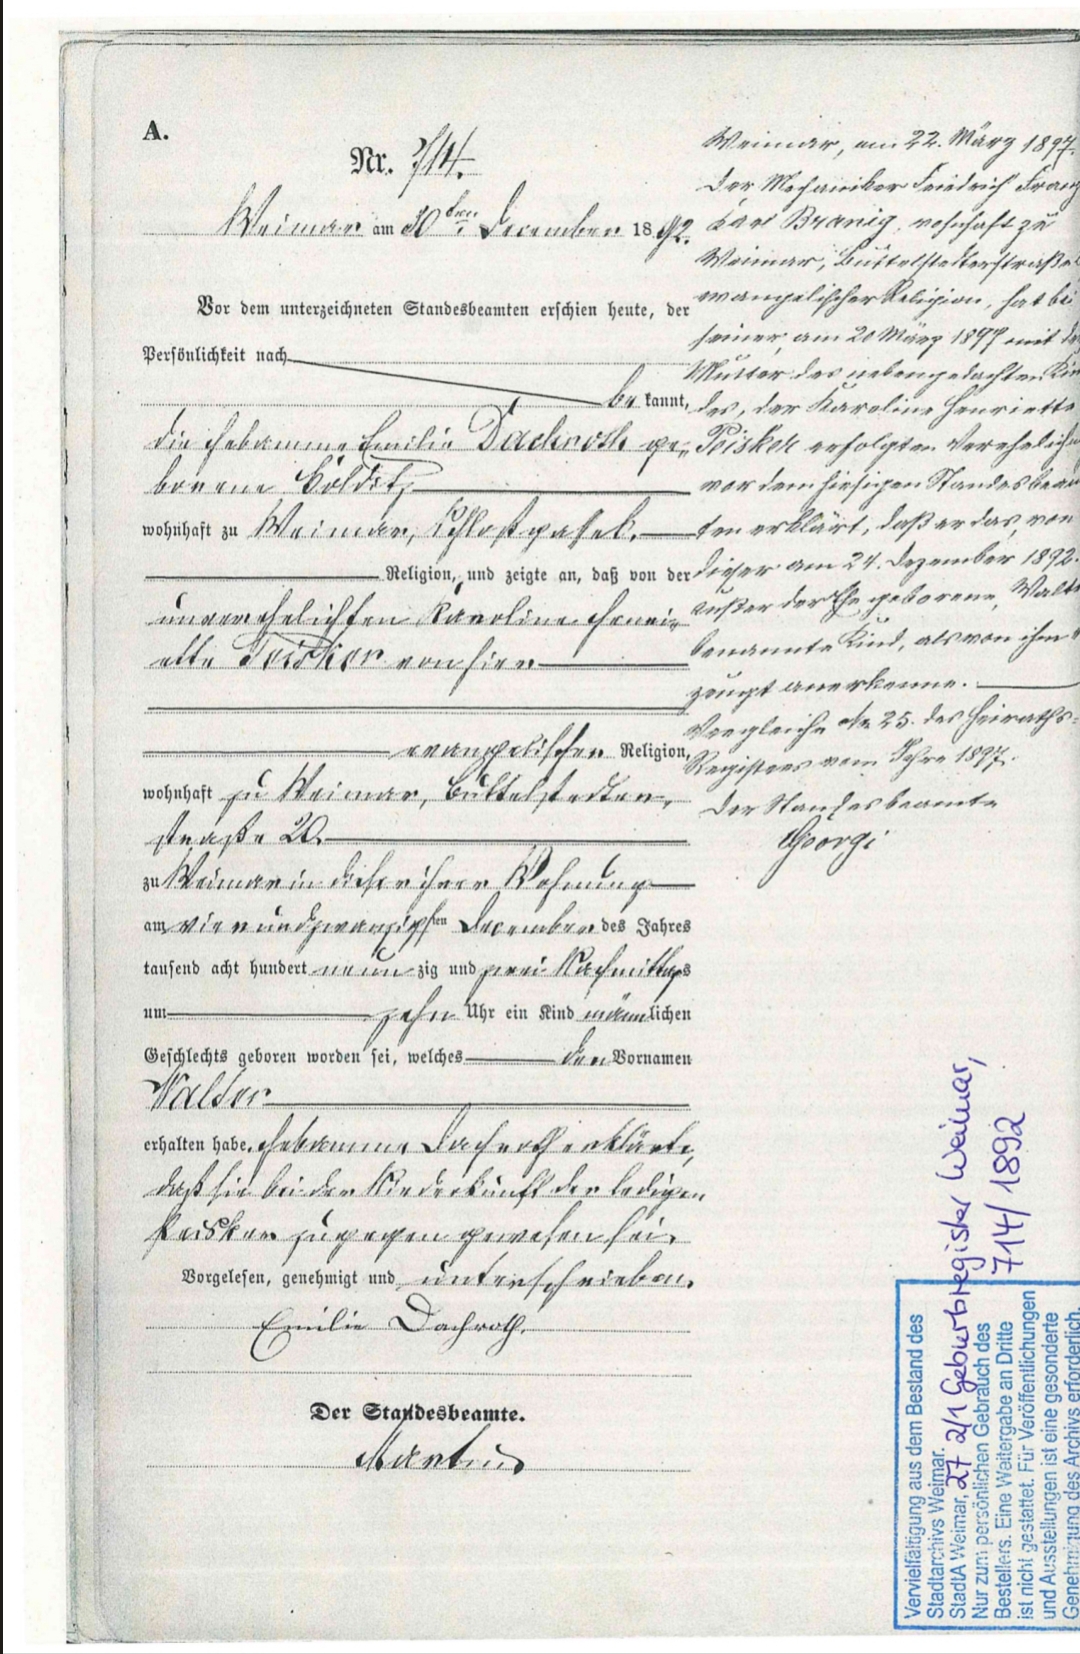 A.
Nr. 714.
Weimar am 30ten December 1892.
Vor dem unterzeichneten Standesbeamten erschien heute, der
Persönlichkeit nach
be kannt,
die Hebamme Emilie Dachroth ge-
borene
wohnhaft zu Weimar, Schloßgasse 6.
Religion, und zeigte an, daß von der
unverehelichten Karoline Henri-
ette Peisker von hier
evangelischer Religion,
wohnhaft zu Weimar, Buttelstedter-
straße 20.
zu Weimar in dieser ihrer Wohnung
am vierundzwanzigsten December des Jahres
tausend acht hundert neunzig und zwei Nachmittags
um zehn Uhr ein Kind männlichen
Geschlechts geboren worden sei, welches den Vornamen
Walter
erhalten habe. Hebamme Dachroth erklärte,
daß sie bei der Niederkunft der ledigen
Peisker zugegen gewesen sei.
Vorgelesen, genehmigt und unterschrieben.
Emilie Dachroth.
Der Standesbeamte.
Weimar, am 22. März 1897.
Der Mechaniker Friedrich Franz
Karl Branig, wohnhaft zu
Weimar, Buttelstedterstraße
evangelischer Religion, hat bei
seiner, am 20 März 1897 mit der
Mutter des nebengedachten Kin
des, der Karoline Henriette
Peisker erfolgten Verehelichu
vor dem hiesigen Standesbeam
ten erklärt, daß er das, von
dieser am 24. Dezember 1892.
außer der Ehe geborene, Walte
benannte Kind, als von ihm
zeugt anerkenne.
Vergleiche Nr 25. des Heiraths-
Registers vom Jahre 1897.
Der Standesbeamte
Georgi
Vervielfältigung aus dem Bestand des
Stadtarchivs Weimar.
StadtA Weimar, 27 2/1 Geburtsregister Weimar,
714/1892
Nur zum persönlichen Gebrauch des
Bestellers. Eine Weitergabe an Dritte
ist nicht gestattet. Für Veröffentlichungen
und Ausstellungen ist eine gesonderte
Genehmigung des Archivs erforderlich.